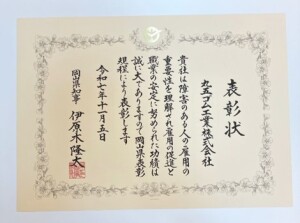 表彰状
丸五ゴム工業株式会社
貴社は障害のある人の雇用の
重要性を理解され雇用の促進と
職業の安定に努められた功績は
誠に大でありますので岡山県表彰
規程により表彰します
令和七年十一月五日
岡山県知事 伊原木隆太